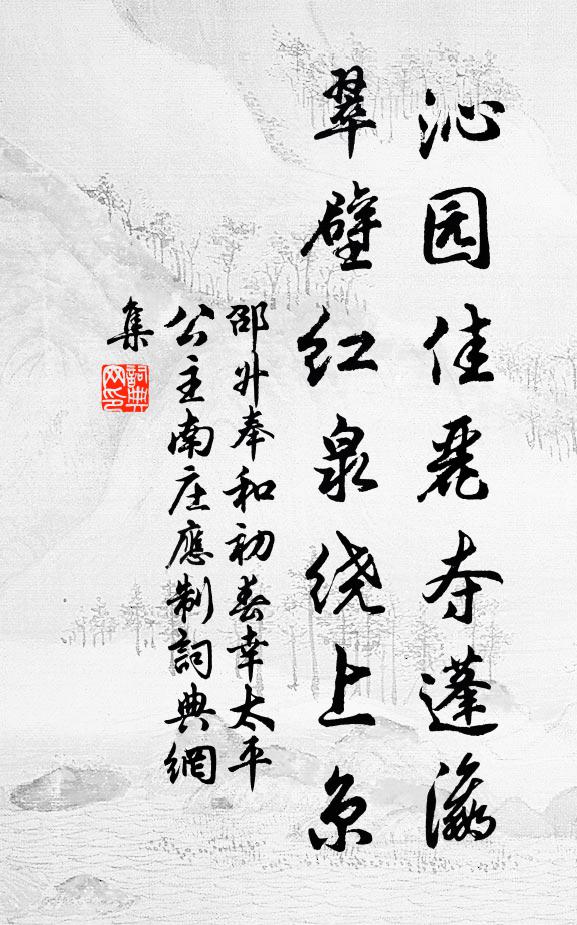 沁园佳麗夺蓬瀛
翠壁红泉绕上京
邵升奉和初春幸太平
公主南庄應制詞典網
集
詞典
网印